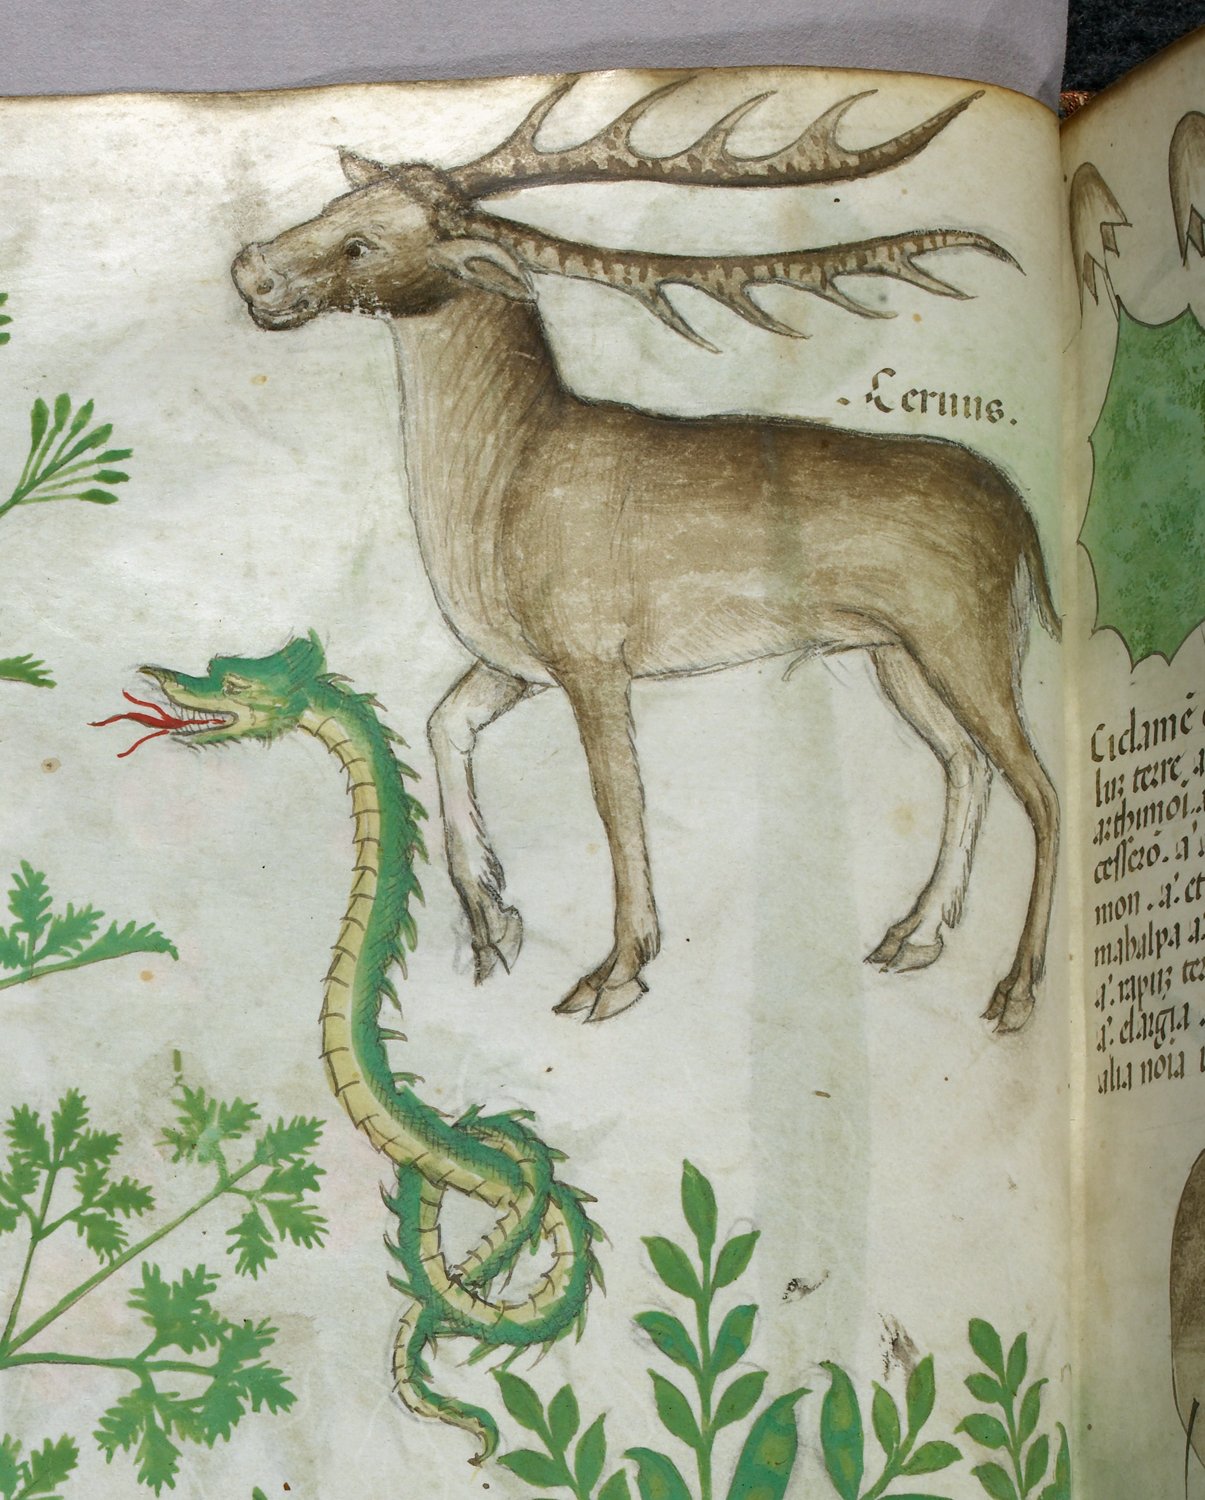 . Ceruus.
Ciclamē
luz terre
arthimoi.
cessero. a'
mon. a. et
mabalpa a.
a'. rapuz ter
a'. clargia.
alia noia